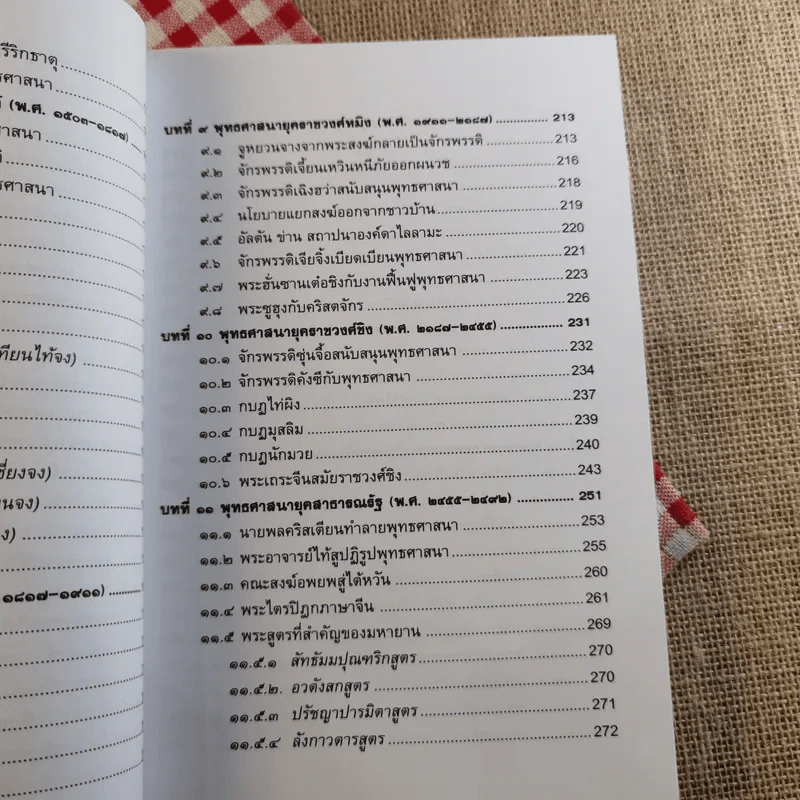 รีริกธาตุ
ธศาสนา
(พ.ศ. ๑๕๐๓–๑๘๑๗)
าสนา
ธศาสนา
ทียนไท้จง)
ชี่ยงจง)
นจง)
ง)
๑๘๑๗–๑๙๑๑)
บทที่ ๙ พุทธศาสนายุคราชวงศ์หมิง (พ.ศ. ๑๙๑๑–๒๑๘๗) ............... 213
๙.๑ จูหยวนจางจากพระสงฆ์กลายเป็นจักรพรรดิ ............... 213
๙.๒ จักรพรรดิเจี้ยนเหวินหนีภัยออกผนวช ............... 216
๙.๓ จักรพรรดิเฉิงฮว่าสนับสนุนพุทธศาสนา ............... 218
๙.๔ นโยบายแยกสงฆ์ออกจากชาวบ้าน ............... 219
๙.๕ อัลตัน ข่าน สถาปนาองค์ดาไลลามะ ............... 220
๙.๖ จักรพรรดิเจียจิ้งเบียดเบียนพุทธศาสนา ............... 221
๙.๗ พระฮั่นซานเต๋อชิงกับงานฟื้นฟูพุทธศาสนา ............... 223
๙.๘ พระซูฮุงกับคริสตจักร ............... 226
บทที่ ๑๐ พุทธศาสนายุคราชวงศ์ชิง (พ.ศ. ๒๑๘๗–๒๔๕๕) ............... 231
๑๐.๑ จักรพรรดิซุ่นจื้อสนับสนุนพุทธศาสนา ............... 232
๑๐.๒ จักรพรรดิคังซีกับพุทธศาสนา ............... 234
๑๐.๓ กบฏไท่ผิง ............... 237
๑๐.๔ กบฏมุสลิม ............... 239
๑๐.๕ กบฏนักมวย ............... 240
๑๐.๖ พระเถระจีนสมัยราชวงศ์ชิง ............... 243
บทที่ ๑๑ พุทธศาสนายุคสาธารณรัฐ (พ.ศ. ๒๔๕๕–๒๔๙๒) ............... 251
๑๑.๑ นายพลคริสเตียนทำลายพุทธศาสนา ............... 253
๑๑.๒ พระอาจารย์ไท้สูปฏิรูปพุทธศาสนา ............... 255
๑๑.๓ คณะสงฆ์อพยพสู่ไต้หวัน ............... 260
๑๑.๔ พระไตรปิฎกภาษาจีน ............... 261
๑๑.๕ พระสูตรที่สำคัญของมหายาน ............... 269
๑๑.๕.๑ สัทธัมมปุณฑริกสูตร ............... 270
๑๑.๕.๒. อวตังสกสูตร ............... 270
๑๑.๕.๓ ปรัชญาปารมิตาสูตร ............... 271
๑๑.๕.๔ ลังกาวตารสูตร ............... 272